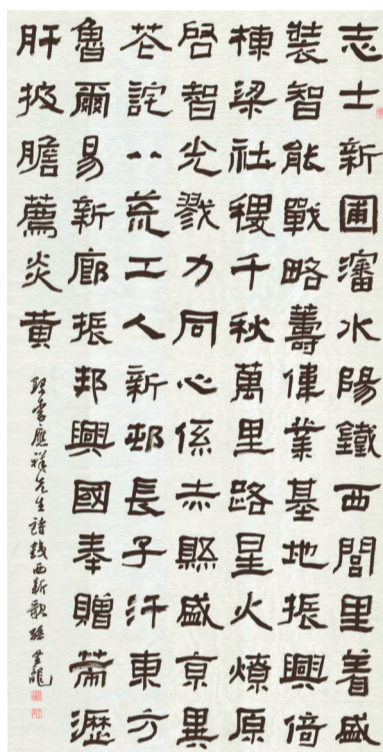 志士新圃瀋水陽鐵西閭里着盛
裝智能戰略籌偉業基地振興倚
棟梁社稷千秋萬里路星火燎原
啓智光戮力同心係赤縣盛京異
花詫八荒工人新邨長子汗東方
魯爾易新廊振邦興國奉贈常瀝
肝披膽薦炎黃
書應祥先生詩鐵西新歌